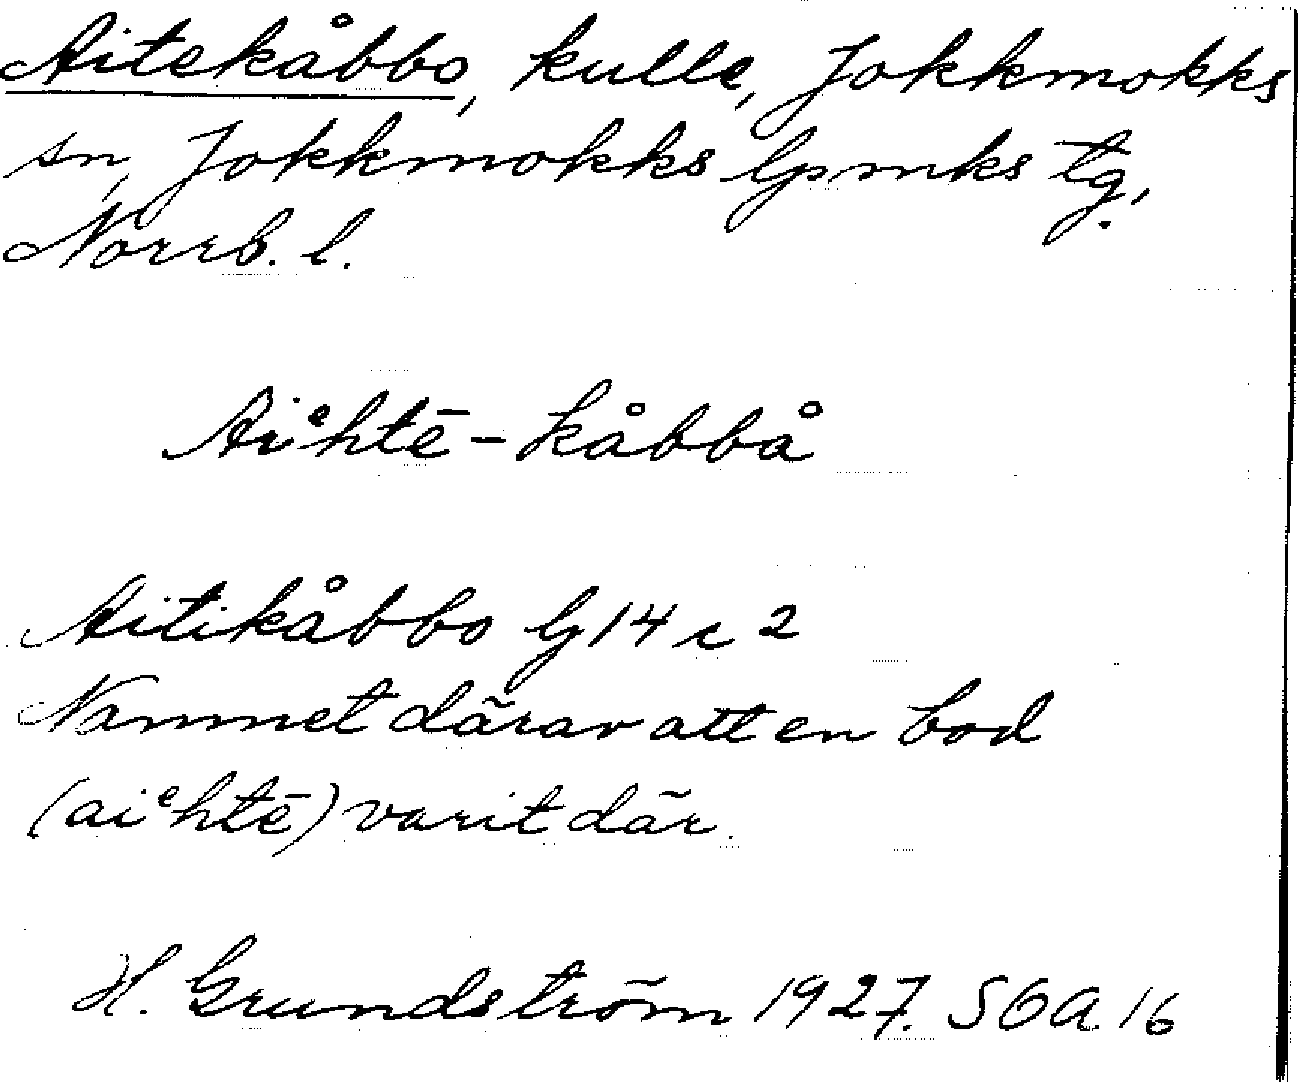 Aitekåbbo, kulle, Jokkmokks
sn, Jokkmokks lpmks tg,
Norrb. l.
Aiᵉhtē-kåbbå
Aitikåbbo G 14 c 2
Namnet därav att en bod
(aiᵉhtē) varit där.
H. Grundström 1927. SOA 16